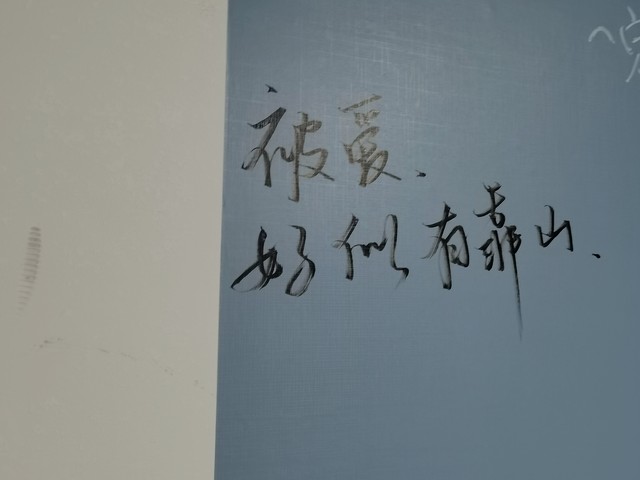 被爱、
好似有靠山、